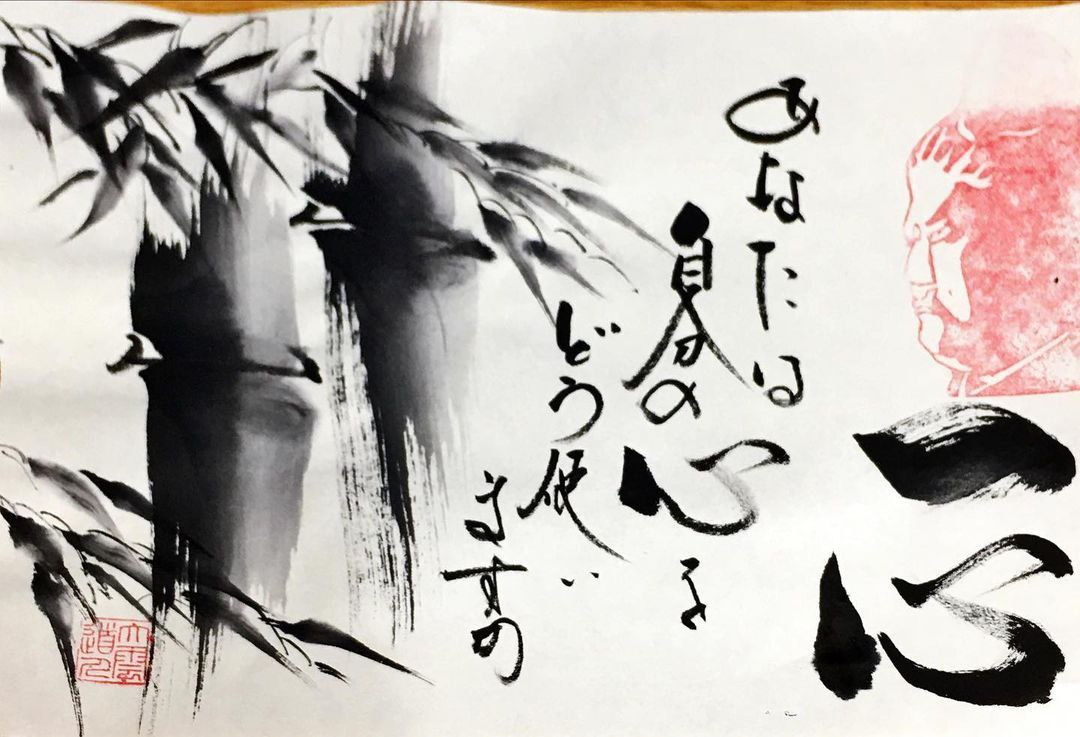 一心
あなたは
自分の心を
どう使い
ますの